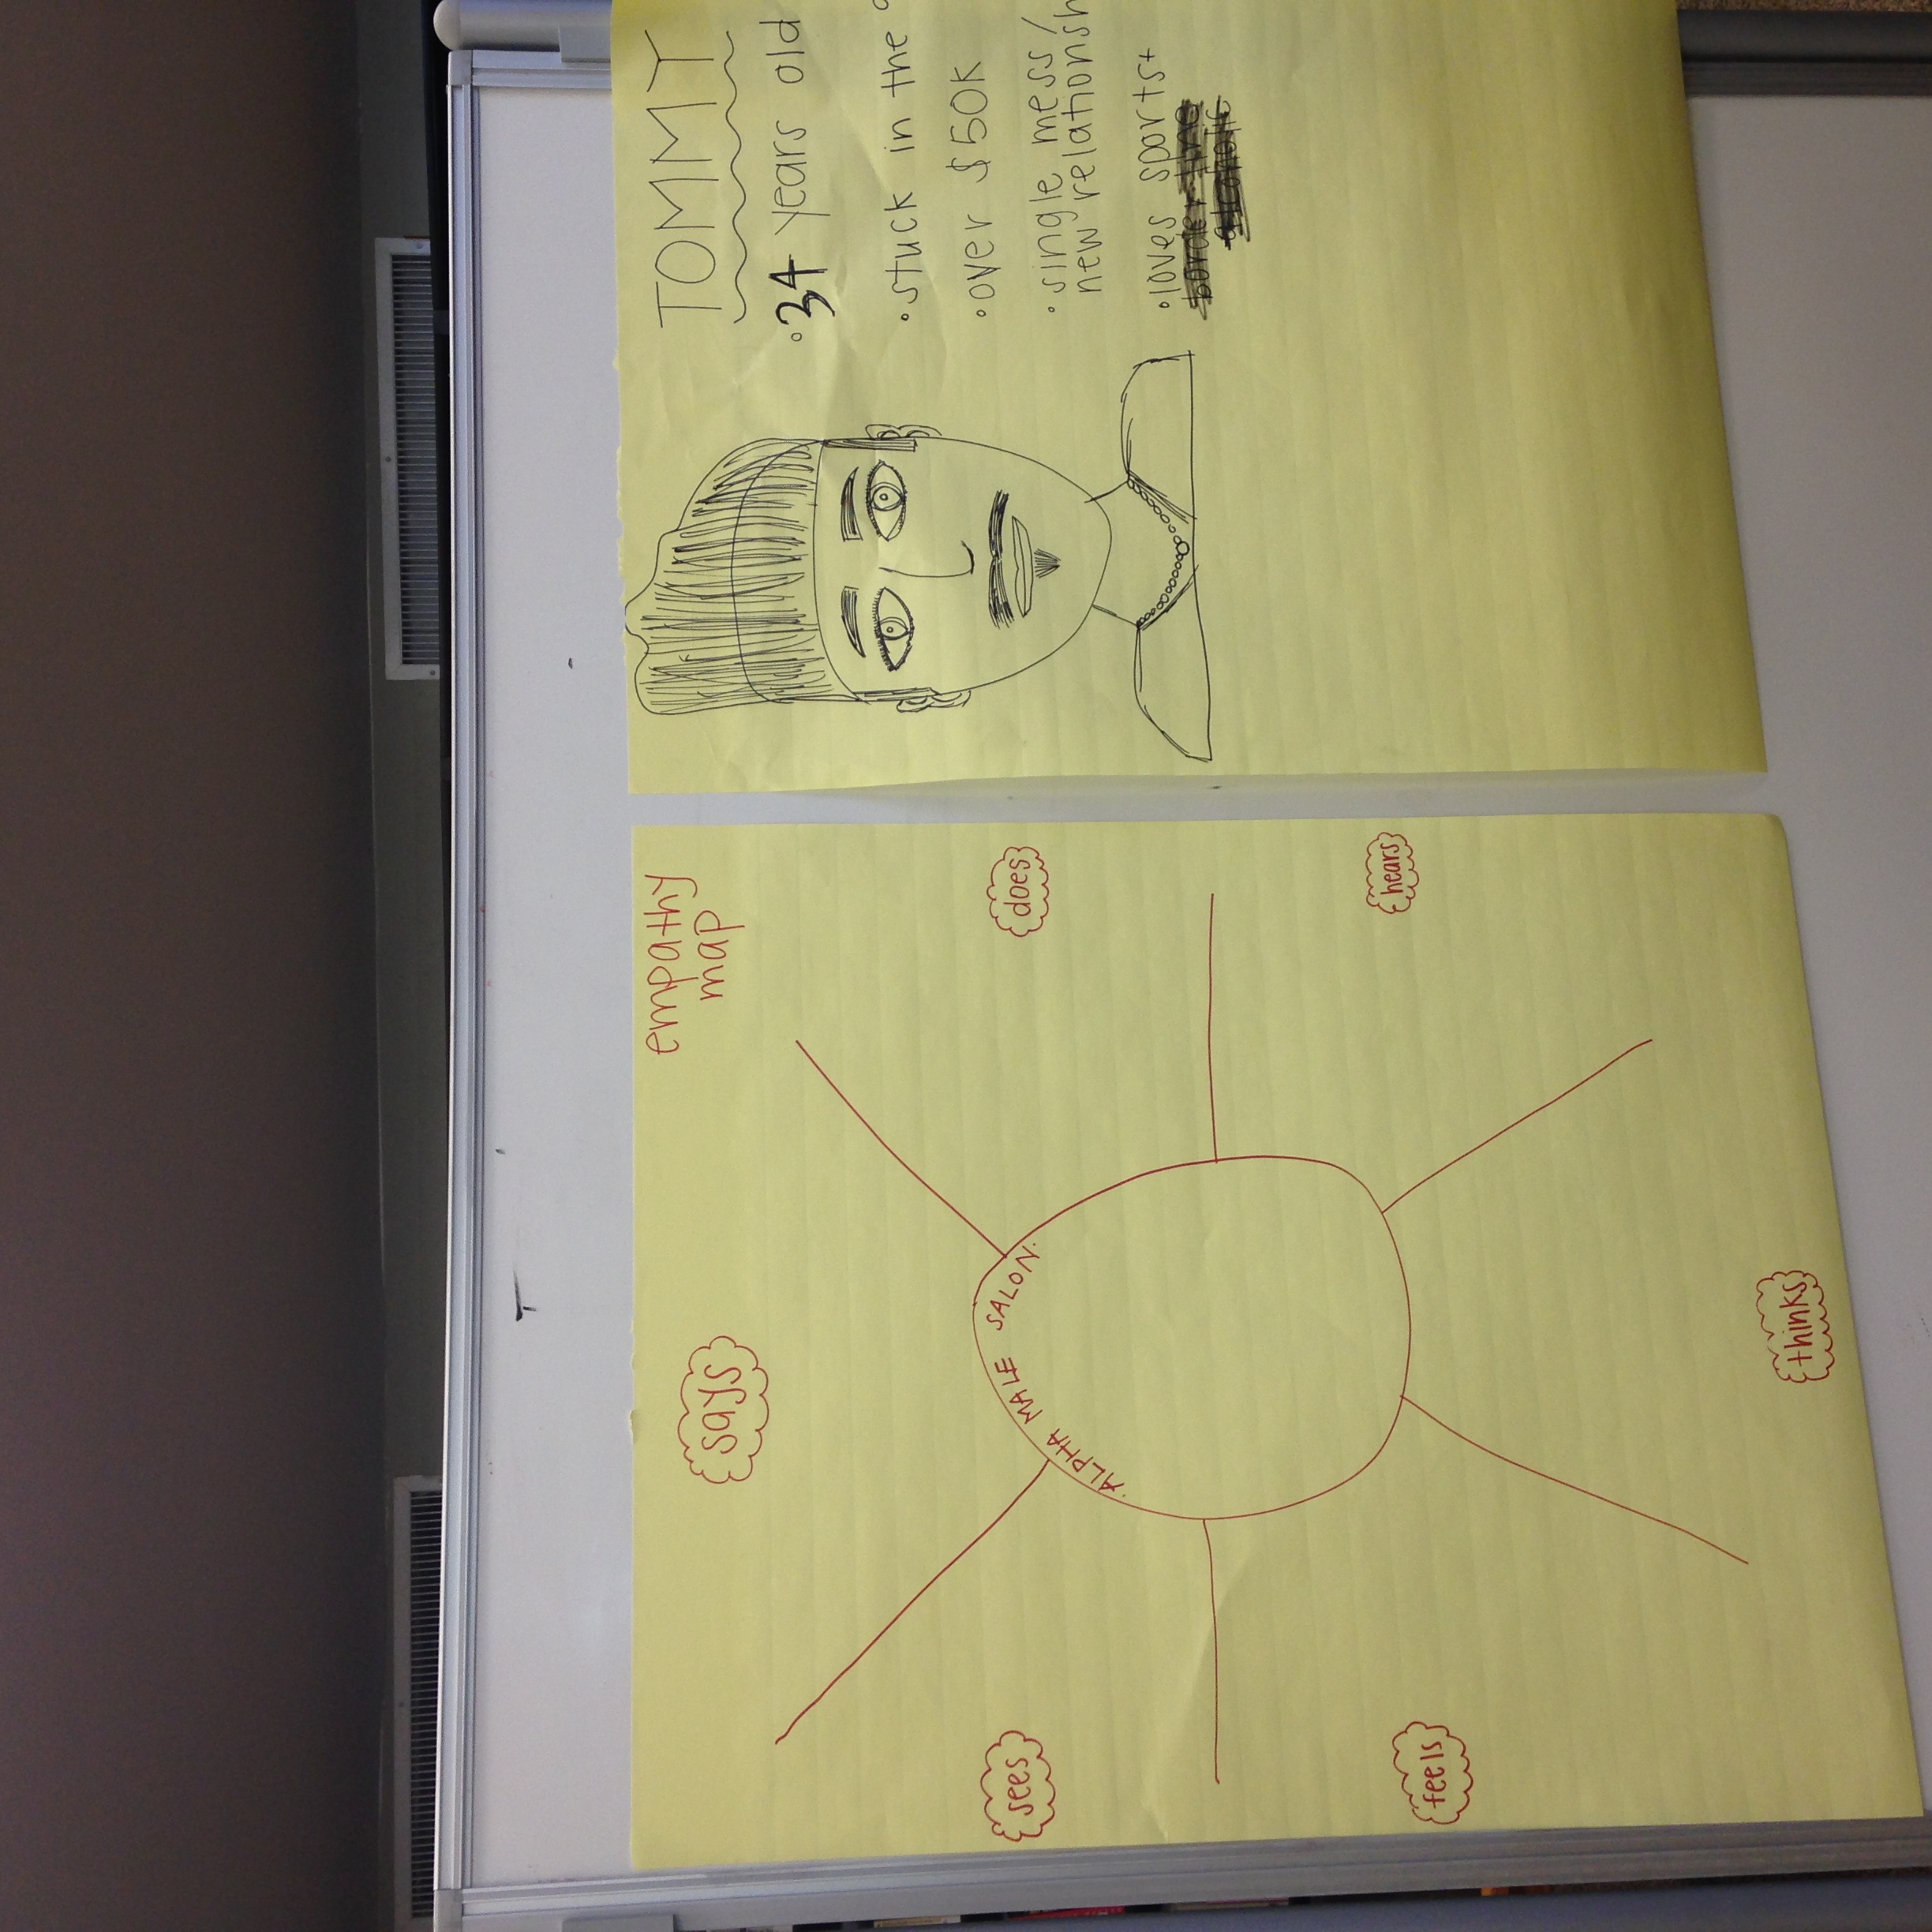 empathy
map
says
sees
does
ALPHA MALE SALON
feels
hears
thinks
TOMMY
34 years old
stuck in the
over $50K
single mess /
new relationsh
loves sports +
border line
alcoholic